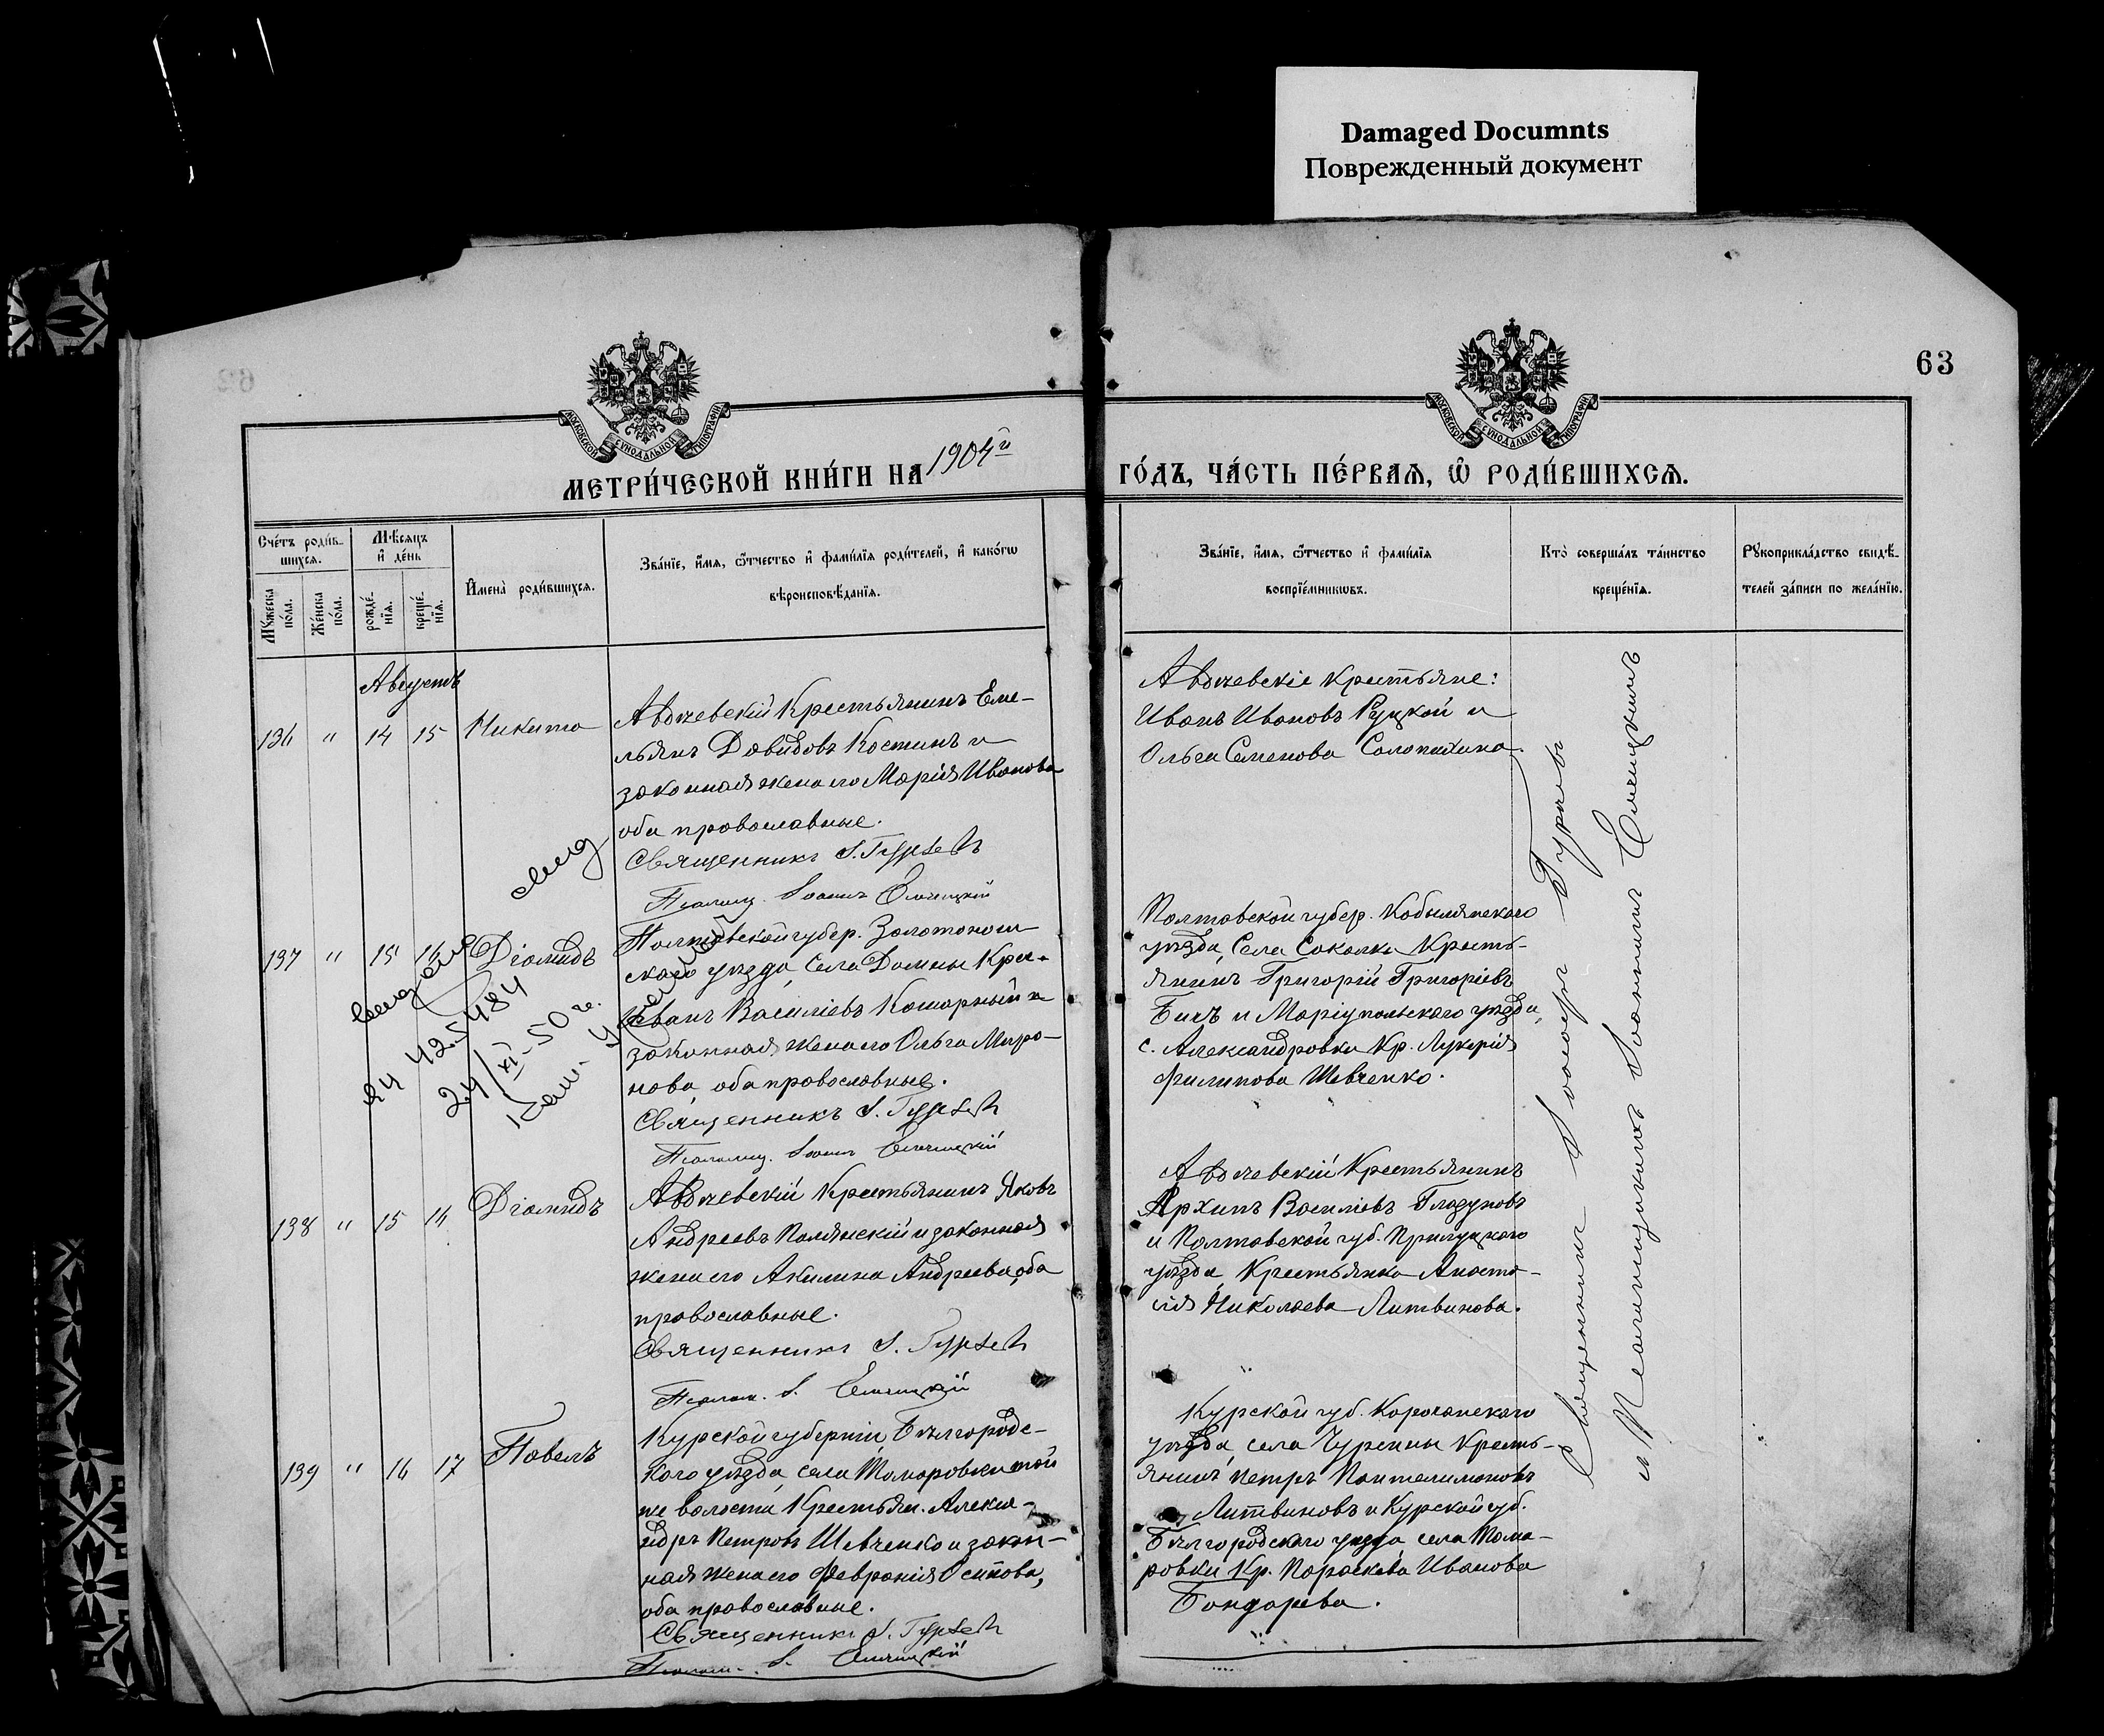 Damaged Documnts
Поврежденный документ
63
МОСКОВСКОЙ СѴНОДАЛЬНОЙ ТИПОГРАФІИ
МОСКОВСКОЙ СѴНОДАЛЬНОЙ ТИПОГРАФІИ
МЕТРИ́ЧЕСКОЙ КНИ́ГИ НА 1904й
ГО́ДЪ, ЧА́СТЬ ПЕ́РВАѦ, Ѡ РОДИ́ВШИХСѦ.
Сче́тъ роди́в-
шихсѧ.
Мѣсяцъ
и де́нь
Мꙋжеска по́ла.
Же́нска по́ла.
рожде́-
нїѧ.
креще́-
нїѧ.
И҆мена̀ роди́вшихсѧ.
Зва́нїе, и҆́мѧ, ѻ҆́тчество и҆ фамилїѧ роди́телей, и҆ како́гѡ
вѣроисповѣ́данїѧ.
Зва́нїе, и҆́мѧ, ѻ҆́тчество и҆ фамилїѧ
воспрїе́мникѡвъ.
Кто̀ соверша́лъ та́инство
креще́нїѧ.
Рꙋкоприкла́дство свидѣ́-
телей за́писи по жела́нїю.
Августъ
136 " 14 15 Никита
Авдѣевскій Крестьянинъ Еме-
льянъ Давидовъ Костинъ и
законная жена его Марія Иванова
оба православные.
Священникъ І. Гурьевъ
Псаломщ. Іоаннъ
Авдѣевскіе крестьяне:
Иванъ Ивановъ Руцкой и
Ольга Семенова Солопихина.
137 " 15 16 Діомидъ
Полтавской губер. Золотонош
скаго уѣзда, села Домны Кре.
Иванъ Василіевъ Комарный и
законная жена его Ольга Миро-
нова, оба православные.
Священникъ І. Гурьевъ
Псаломщ. Іоаннъ
24 425484
24/XI-50 г.
Полтавской губер. Кобылянскаго
уѣзда, Села Соколки Кресть-
янинъ Григорій Григоріевъ
Бицъ и Маріупольскаго уѣзда,
с. Александровки Кр. Лукерія
Филипова Шевченко.
138 " 15 16 Діомидъ
Авдѣевскій Крестьянинъ Яковъ
Андреевъ Полянскій и законная
жена его Акилина Андреева, оба
православные.
Священникъ І. Гурьевъ
Псалом. І.
Авдѣевскій Крестьянинъ
Архипъ Василіевъ Глазуновъ
и Полтавской губ. Прилуцкаго
уѣзда, Крестьянка Анаста-
сія Николаева Литвинова.
139 " 16 17 Павелъ
Курской губерніи, Бѣлгородс-
каго уѣзда, села Томаровки той
же волости, Крестьян. Алекса-
ндръ Петровъ Шевченко и закон-
ная жена его Февронія Осипова,
оба православные.
Священникъ І. Гурьевъ
Псалом. І.
Курской губ. Корочанскаго
уѣзда, села Чурсины Кресть-
янинъ Петръ Пантелимоновъ
Литвиновъ и Курской губ.
Бѣлгородскаго уѣзда села Тома-
ровки Кр. Параскева Иванова
Бондарева.
Священникъ Іоаннъ Гурьевъ
и Псаломщикомъ Іоанномъ